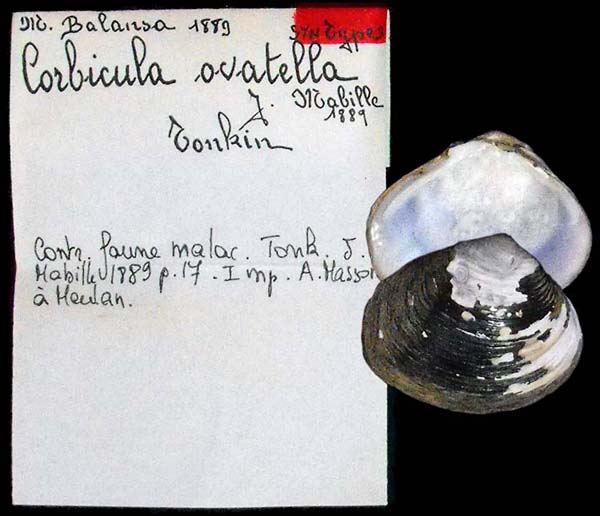 M. Balansa 1889
SYNTypes
Corbicula ovatella
J. Mabille
1889
Tonkin
Contr. faune malac. Tonk. J.
Mabille 1889 p. 17. Imp. A. Masson
à Meulan.